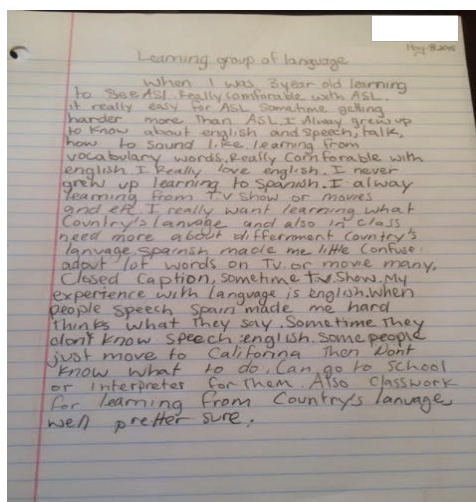 May 8, 2015
Learning group of language
When I was 3 year old learning
to see ASL. Really comforable with ASL.
it really easy for ASL sometime getting
harder more than ASL. I Alway grew up
to know about english and speech, talk,
how to sound like, learning from
vocabulary words. Really comforable with
english I Really love english. I never
grew up learning to spanish. I alway
learning from T.V show or movies
and etc. I really want learning what
Country's lanvage and also in class
need more about differnment country's
lanvage spainsh made me little confuse
adout lot words on Tv. or movie many.
Closed Caption, sometime T.V. show. My
experience with language is english. When
people speech spain made me hard
thinks what they say. Sometime they
don't know speech english. Some people
just move to Califorina then Dont
know what to do. Can go to school
or interpreter for them. Also classwork
for learning from country's lanvage
well pretter sure.